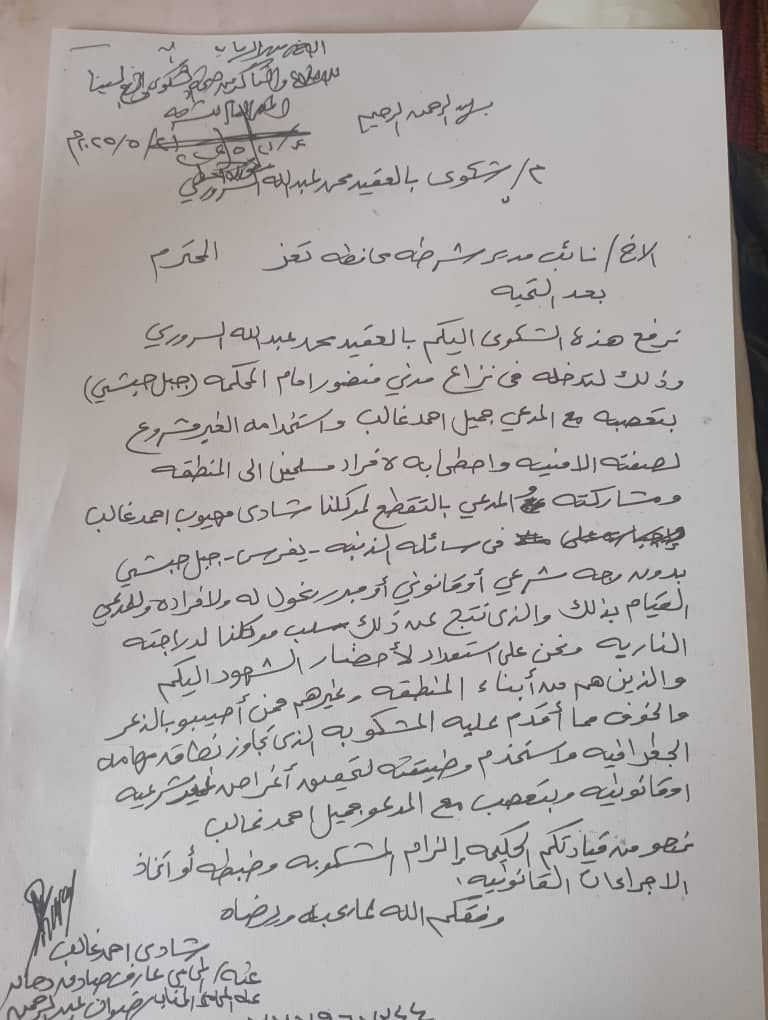 بسم الله الرحمن الرحيم
٢٠٢٥/٥/
م/ شكوى بالعقيد محمد عبدالله السروري
الاخ/ نائب مدير شرطه محافظه تعز المحترم
بعد التحيه
نرفع هذه الشكوى اليكم بالعقيد محمد عبدالله السروري
وذلك لتدخله في نزاع مدني منضور امام المحكمه (جبل حبشي)
بتعصبه مع المدعي جميل احمد غالب واستخدامه الغير مشروع
لصفته الامنيه واصطحابه لافراد مسلحين الى المنطقه
ومشاركته المدعي بالتقطع لموكلنا شادي مهيوب احمد غالب
في سائله - يفرس - جبل حبشي
بدون وجه شرعي أو قانوني أو مبرر يخول له ولافراده وللمدعي
القيام بذلك والذي نتج عن ذلك سلب موكلنا لدراجته
الناريه ونحن على استعداد لأحضار الشهود اليكم
والذين هم من أبناء المنطقه وغيرهم ممن أصيبو بالذعر
والخوف مما أقدم عليه المشكو به الذي تجاوز نطاق مهامه
الجغرافيه واستخدم وضيفته لتحقيق أغراض غير شرعيه
او قانونيه وبتعصب مع المدعو جميل احمد غالب
نرجو من قيادتكم الحكيمه إلزام المشكو به وضبطه أو اتخاذ
الاجراءات القانونيه.
وفقكم الله لما يحبه ويرضاه
شادي احمد غالب
عنه/ المحامي عارف صادق